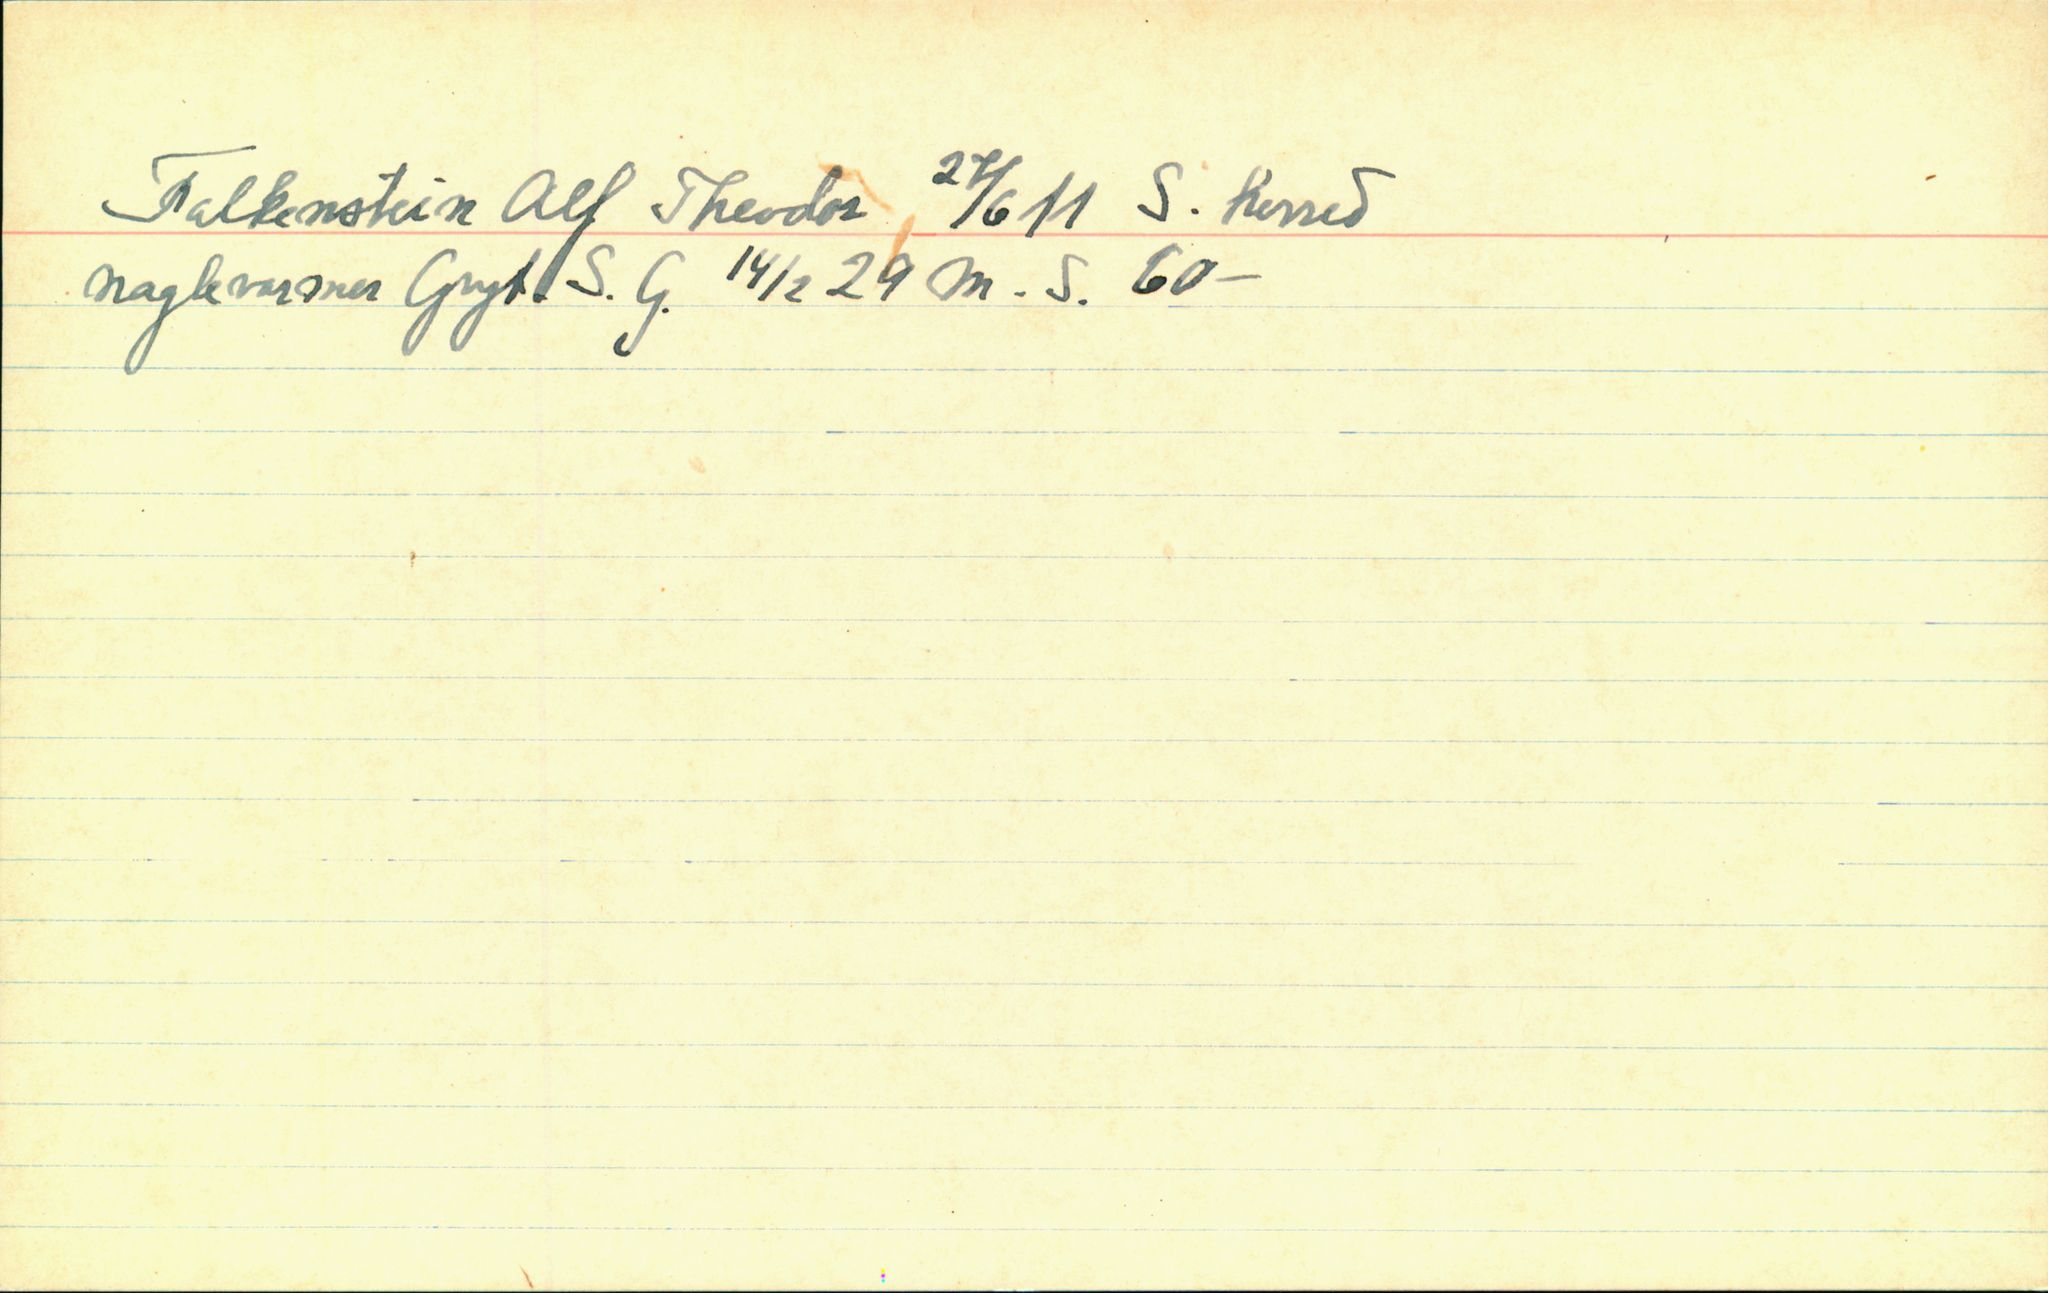 Falkenstein Alf Theodor 27/6 11 S. herred
naglevarmer Gryt. S. G. 14/2 29 M. S. 60-